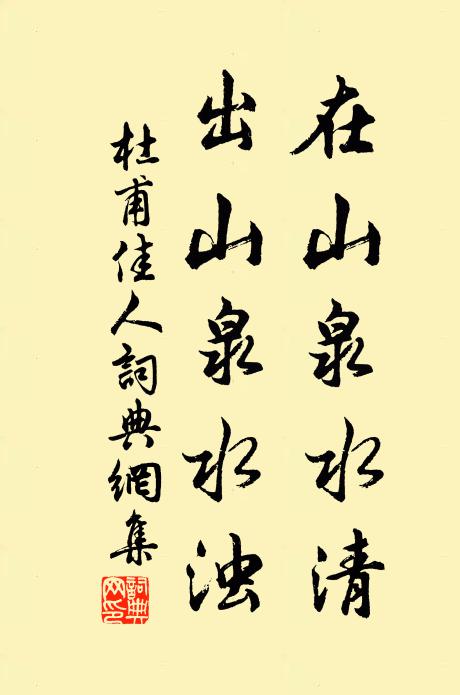 在山泉水清
出山泉水浊
杜甫佳人詞典網集
詞典网印